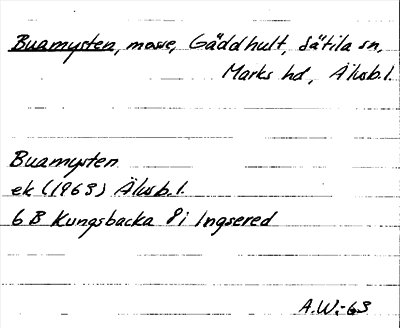 Buamysten, mosse, Gäddhult, Sätila sn,
Marks hd, Älvsb.l.
Buamysten
ek (1963) Älvsb.l.
6 B Kungsbacka 8i Ingsered
A.W.-63